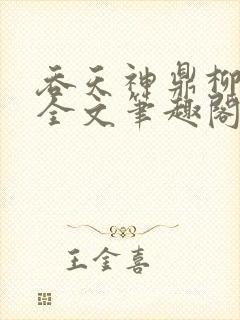 吞天神鼎柳
全文笔趣阁
王金喜